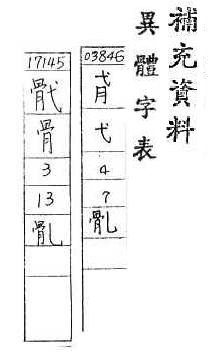 補充資料
異體字表
03846
弋
4
7
17145
骨
3
13